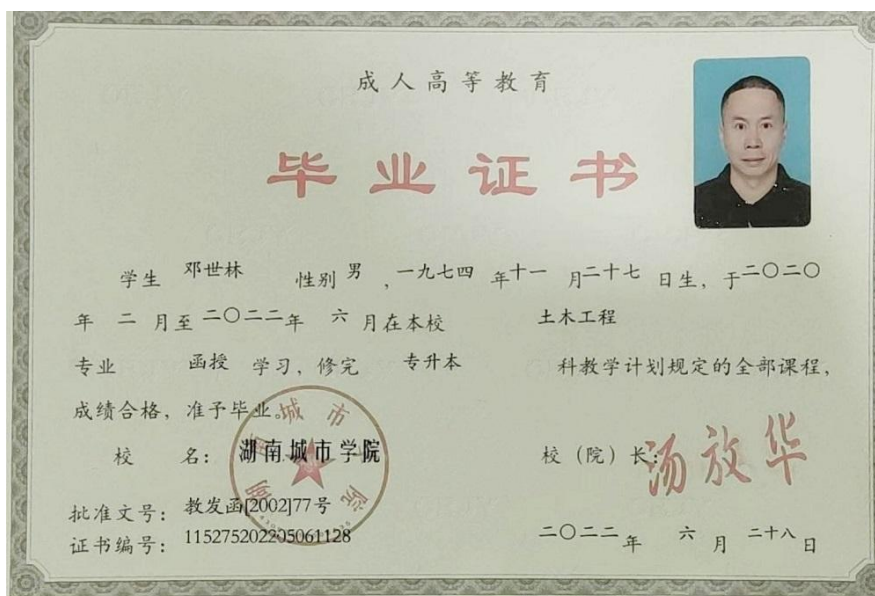 成人高等教育
毕业证书
学生 邓世林 性别 男 ,一九七四 年十一 月二十七 日生，于二〇二〇
年 二 月至 二〇二二年 六 月在本校 土木工程
专业 函授 学习，修完 专升本 科教学计划规定的全部课程，
成绩合格，准予毕业。
校 名：湖南城市学院 校（院）长：汤放华
批准文号：教发函[2002]77号
证书编号：115275202205061128 二〇二二 年 六 月 二十八 日
湖南城市学院